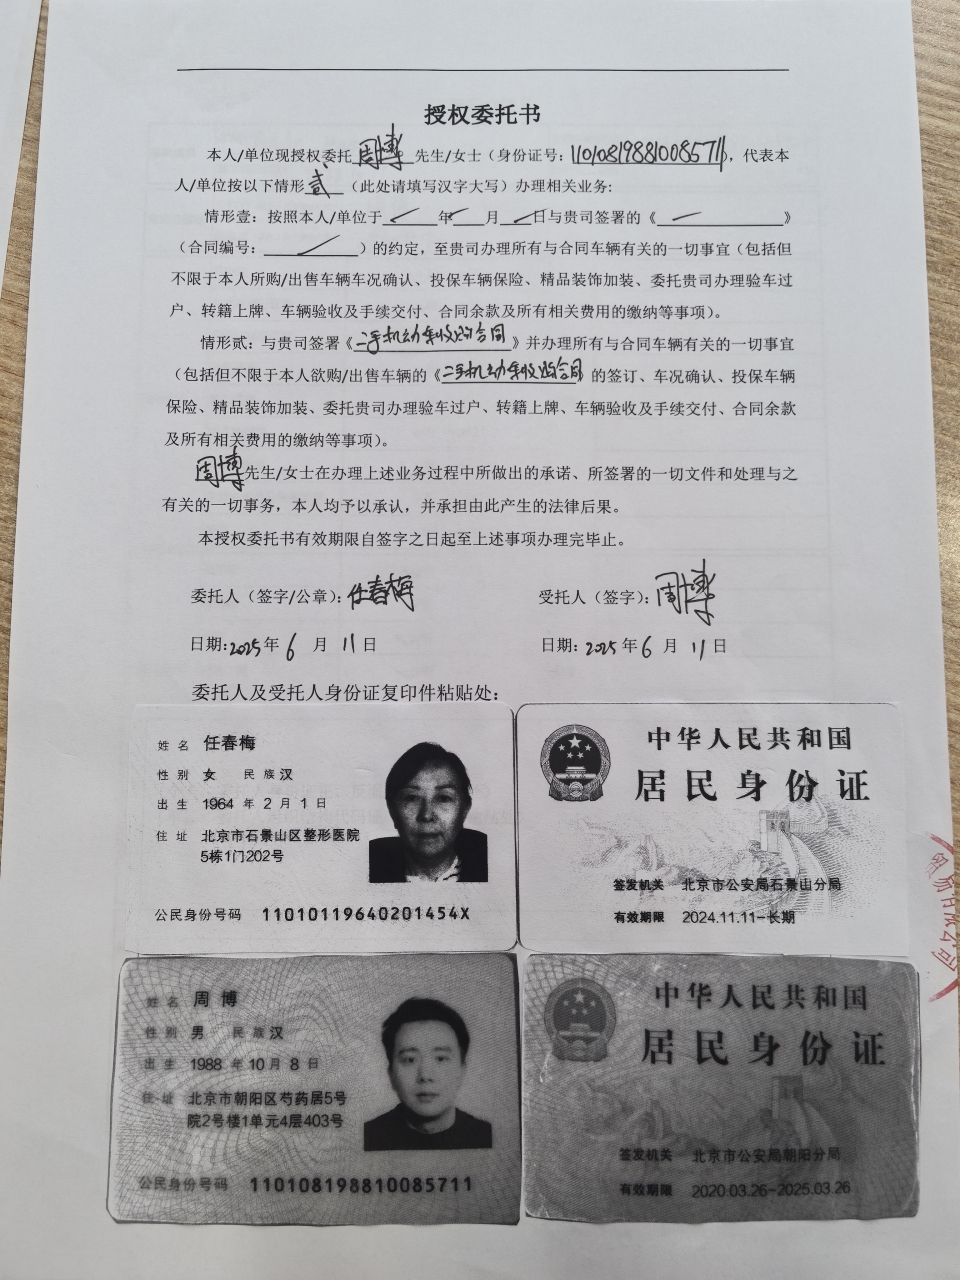 授权委托书
本人/单位现授权委托周博先生/女士（身份证号：110108198810085711），代表本
人/单位按以下情形贰（此处请填写汉字大写）办理相关业务：
情形壹：按照本人/单位于 年 月 日与贵司签署的《 》
（合同编号： ）的约定，至贵司办理所有与合同车辆有关的一切事宜（包括但
不限于本人所购/出售车辆车况确认、投保车辆保险、精品装饰加装、委托贵司办理验车过
户、转籍上牌、车辆验收及手续交付、合同余款及所有相关费用的缴纳等事项）。
情形贰：与贵司签署《二手机动车收购合同》并办理所有与合同车辆有关的一切事宜
（包括但不限于本人欲购/出售车辆的《二手机动车收购合同》的签订、车况确认、投保车辆
保险、精品装饰加装、委托贵司办理验车过户、转籍上牌、车辆验收及手续交付、合同余款
及所有相关费用的缴纳等事项）。
周博先生/女士在办理上述业务过程中所做出的承诺、所签署的一切文件和处理与之
有关的一切事务，本人均予以承认，并承担由此产生的法律后果。
本授权委托书有效期限自签字之日起至上述事项办理完毕止。
委托人（签字/公章）：任春梅 受托人（签字）：周博
日期：2025年6月11日 日期：2025年6月11日
委托人及受托人身份证复印件粘贴处：
姓名 任春梅
性别 女 民族 汉
出生 1964年2月1日
住址 北京市石景山区整形医院
5栋1门202号
公民身份号码 11010119640201454X
中华人民共和国
居民身份证
签发机关 北京市公安局石景山分局
有效期限 2024.11.11-长期
姓名 周博
性别 男 民族 汉
出生 1988年10月8日
住址 北京市朝阳区芍药居5号
院2号楼1单元4层403号
公民身份号码 110108198810085711
中华人民共和国
居民身份证
签发机关 北京市公安局朝阳分局
有效期限 2020.03.26-2025.03.26
限公司